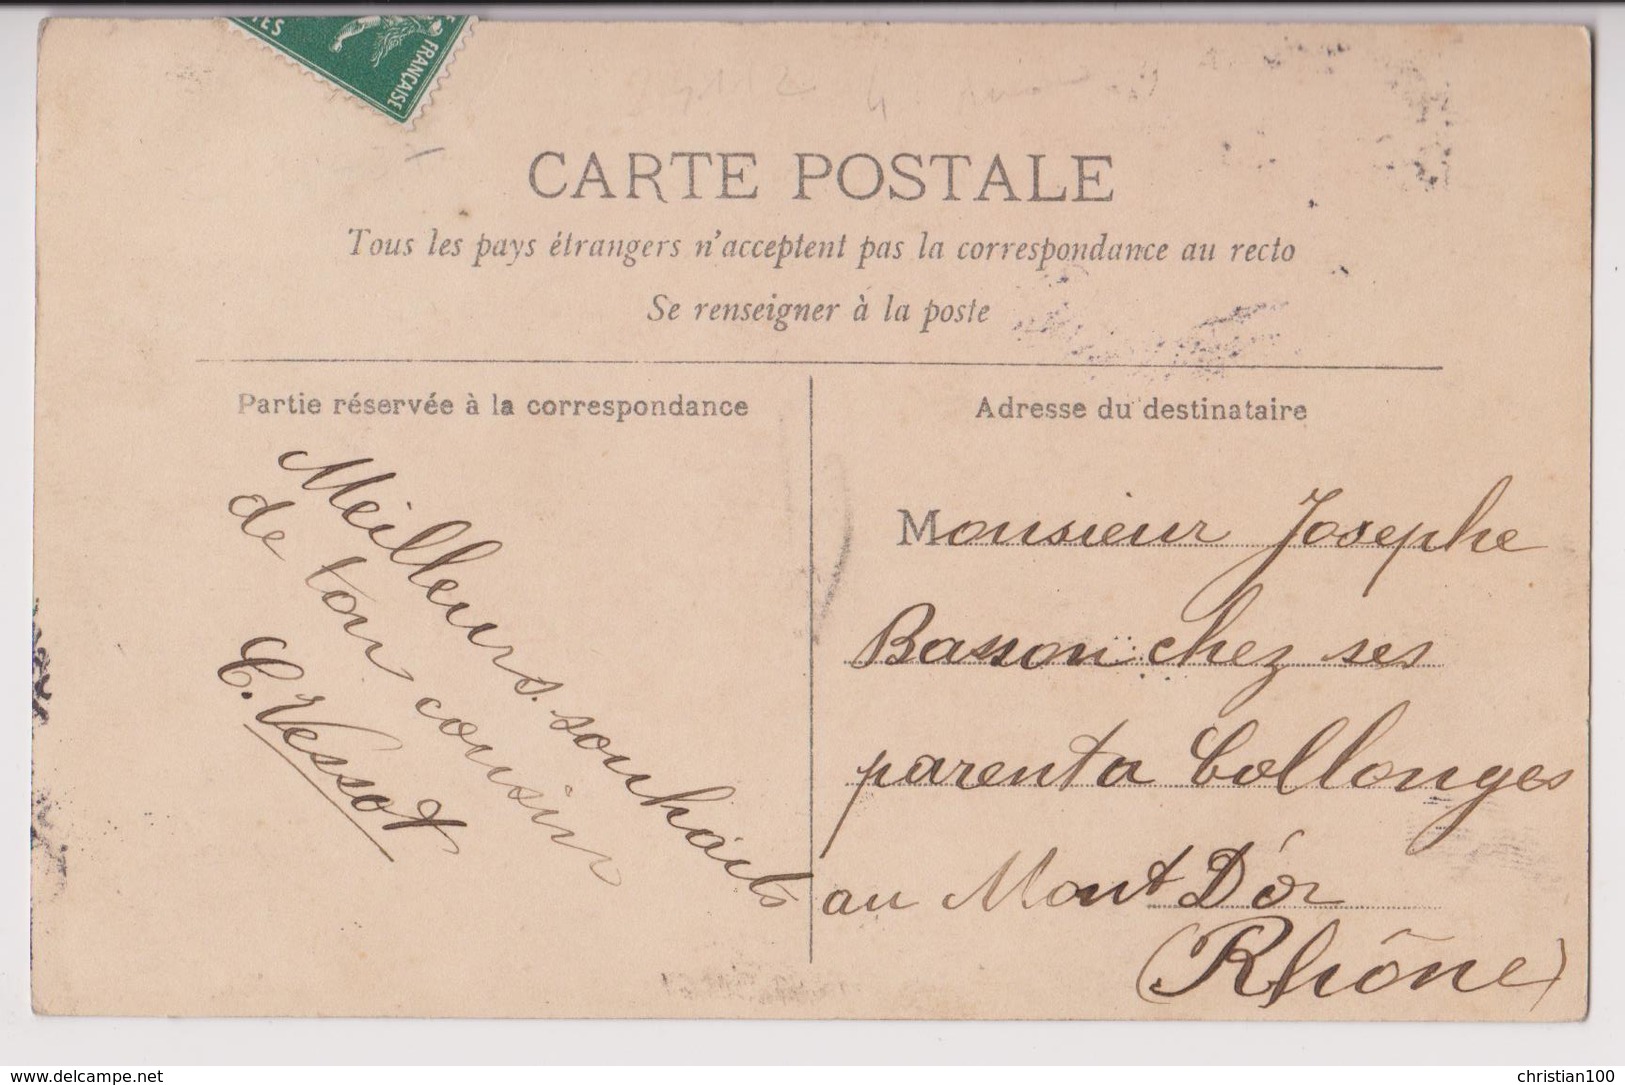 TES
FRANÇAISE
CARTE POSTALE
Tous les pays étrangers n'acceptent pas la correspondance au recto
Se renseigner à la poste
Partie réservée à la correspondance
Meilleurs souhaits
de ton cousin
C. Vessot
Adresse du destinataire
Monsieur Josephe
Basson chez ses
parents a Collonges
au Mont D'or
(Rhône)
www.delcampe.net
christian100